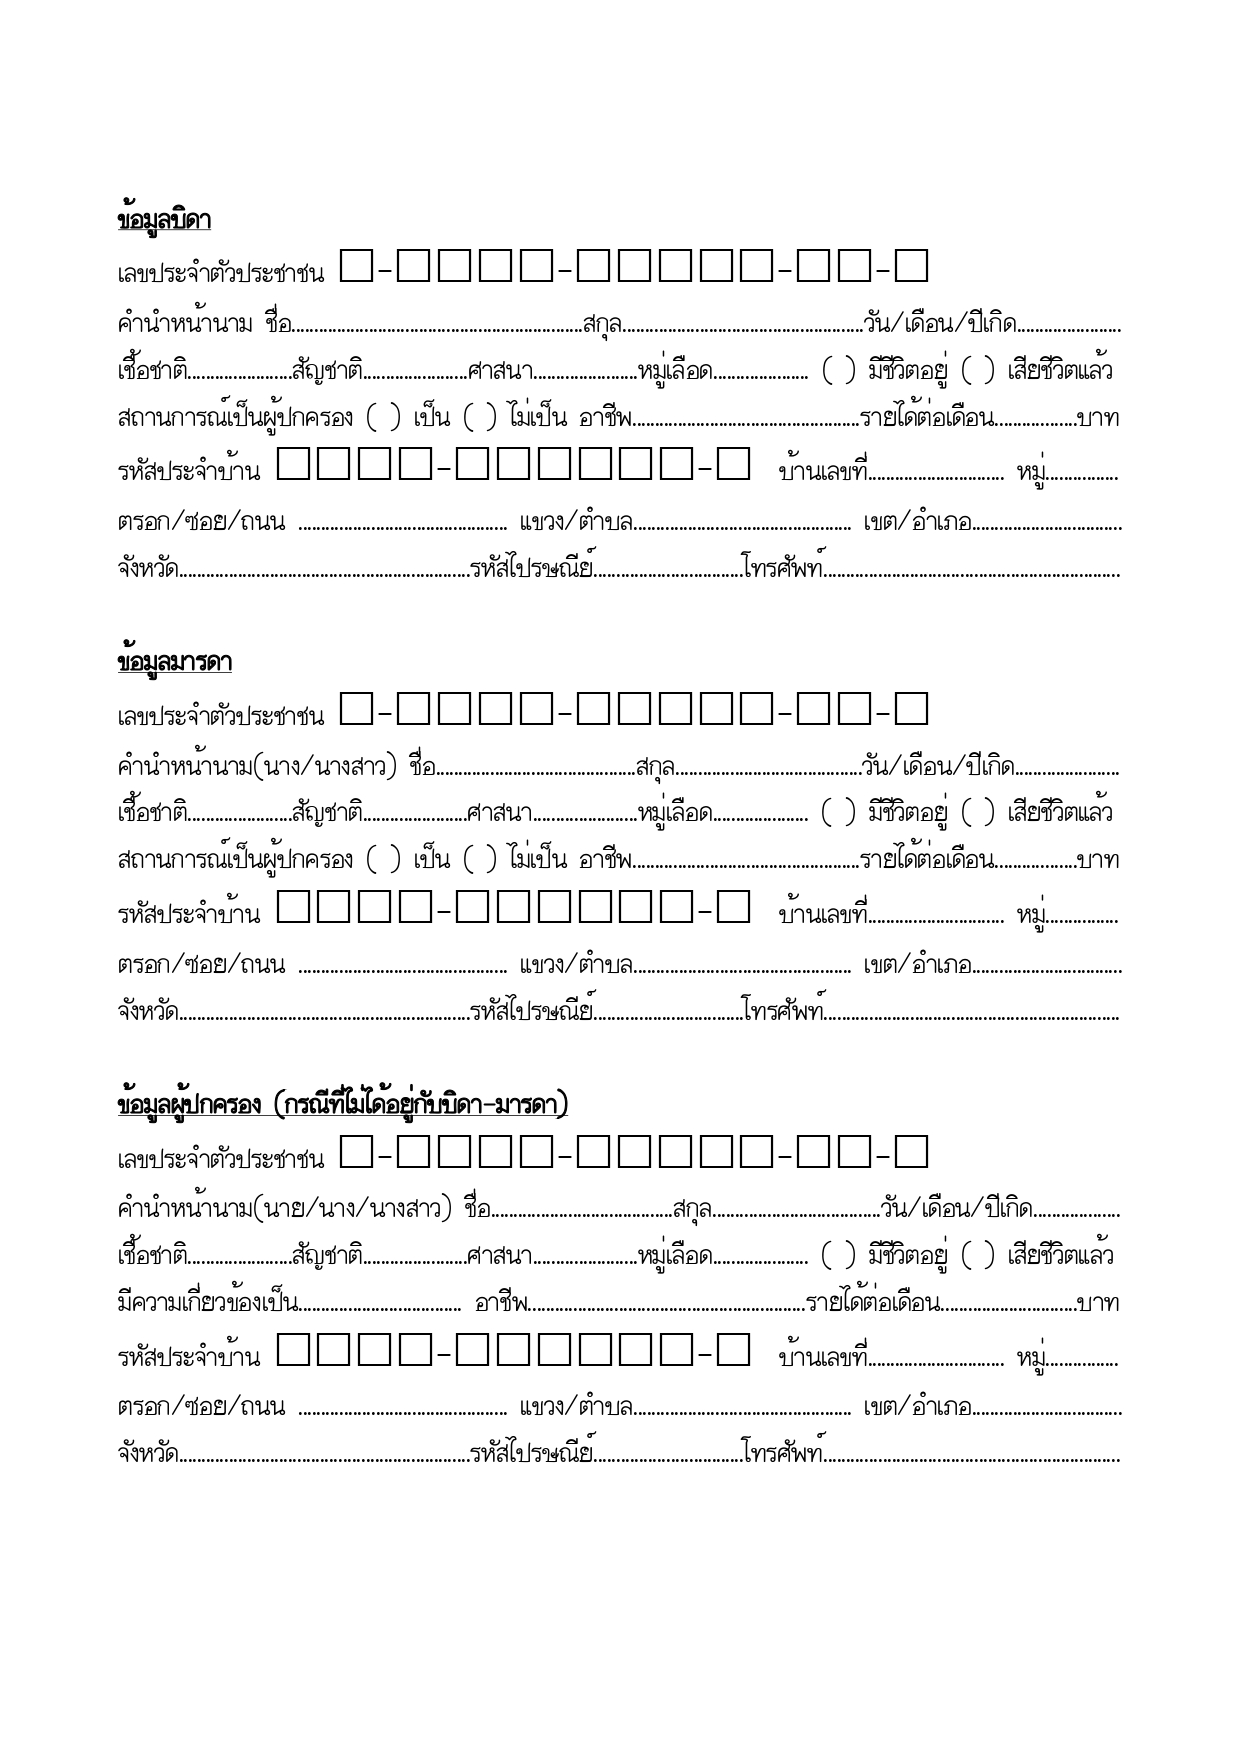 ข้อมูลบิดา
เลขประจำตัวประชาชน □-□□□□-□□□□□-□□-□
คำนำหน้านาม ชื่อ................................................................สกุล.....................................................วัน/เดือน/ปีเกิด.......................
เชื้อชาติ.......................สัญชาติ.......................ศาสนา.......................หมู่เลือด..................... ( ) มีชีวิตอยู่ ( ) เสียชีวิตแล้ว
สถานการณ์เป็นผู้ปกครอง ( ) เป็น ( ) ไม่เป็น อาชีพ..................................................รายได้ต่อเดือน..................บาท
รหัสประจำบ้าน □□□□-□□□□□□-□ บ้านเลขที่.............................. หมู่................
ตรอก/ซอย/ถนน .............................................. แขวง/ตำบล................................................ เขต/อำเภอ.................................
จังหวัด................................................................รหัสไปรษณีย์.................................โทรศัพท์.................................................................
ข้อมูลมารดา
เลขประจำตัวประชาชน □-□□□□-□□□□□-□□-□
คำนำหน้านาม(นาง/นางสาว) ชื่อ............................................สกุล.........................................วัน/เดือน/ปีเกิด.......................
เชื้อชาติ.......................สัญชาติ.......................ศาสนา.......................หมู่เลือด..................... ( ) มีชีวิตอยู่ ( ) เสียชีวิตแล้ว
สถานการณ์เป็นผู้ปกครอง ( ) เป็น ( ) ไม่เป็น อาชีพ..................................................รายได้ต่อเดือน..................บาท
รหัสประจำบ้าน □□□□-□□□□□□-□ บ้านเลขที่.............................. หมู่................
ตรอก/ซอย/ถนน .............................................. แขวง/ตำบล................................................ เขต/อำเภอ.................................
จังหวัด................................................................รหัสไปรษณีย์.................................โทรศัพท์.................................................................
ข้อมูลผู้ปกครอง (กรณีที่ไม่ได้อยู่กับบิดา-มารดา)
เลขประจำตัวประชาชน □-□□□□-□□□□□-□□-□
คำนำหน้านาม(นาย/นาง/นางสาว) ชื่อ........................................สกุล.....................................วัน/เดือน/ปีเกิด...................
เชื้อชาติ.......................สัญชาติ.......................ศาสนา.......................หมู่เลือด..................... ( ) มีชีวิตอยู่ ( ) เสียชีวิตแล้ว
มีความเกี่ยวข้องเป็น.................................... อาชีพ.............................................................รายได้ต่อเดือน..............................บาท
รหัสประจำบ้าน □□□□-□□□□□□-□ บ้านเลขที่.............................. หมู่................
ตรอก/ซอย/ถนน .............................................. แขวง/ตำบล................................................ เขต/อำเภอ.................................
จังหวัด................................................................รหัสไปรษณีย์.................................โทรศัพท์.................................................................